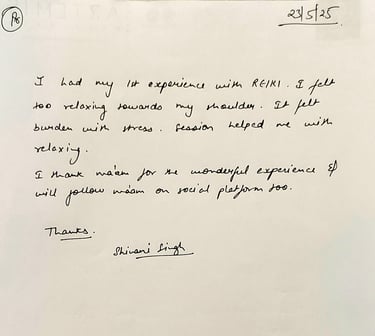 23/5/25
I had my 1st experience with REIKI. I felt
too relaxing towards my shoulder. It felt
burden with stress. Session helped me with
relaxing.
I thank ma'am for the wonderful experience &
will follow ma'am on social platform too.
Thanks.
Shivani Singh